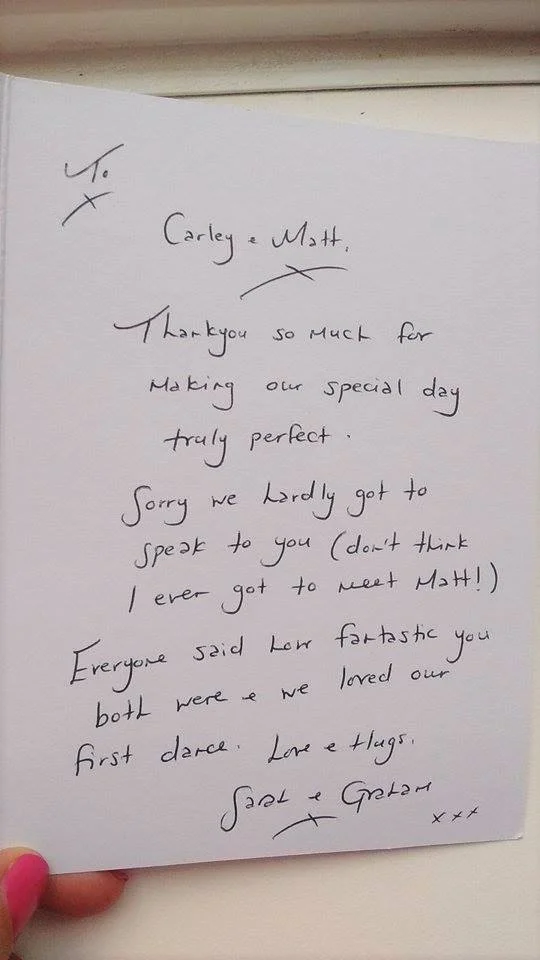 To
Carley & Matt,
Thankyou so much for
making our special day
truly perfect.
Sorry we hardly got to
speak to you (don't think
I ever got to meet Matt!)
Everyone said how fantastic you
both were & we loved our
first dance. Love & Hugs,
Sarah & Graham
xxx